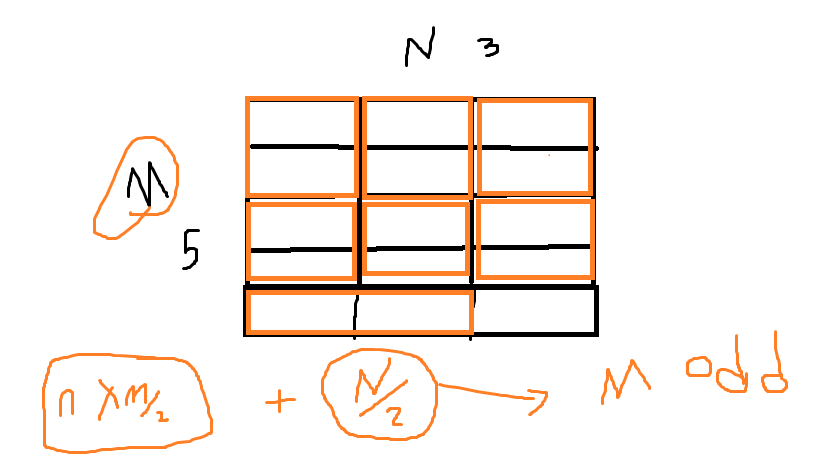 N 3
M
5
n X M/2 + N/2 → M odd